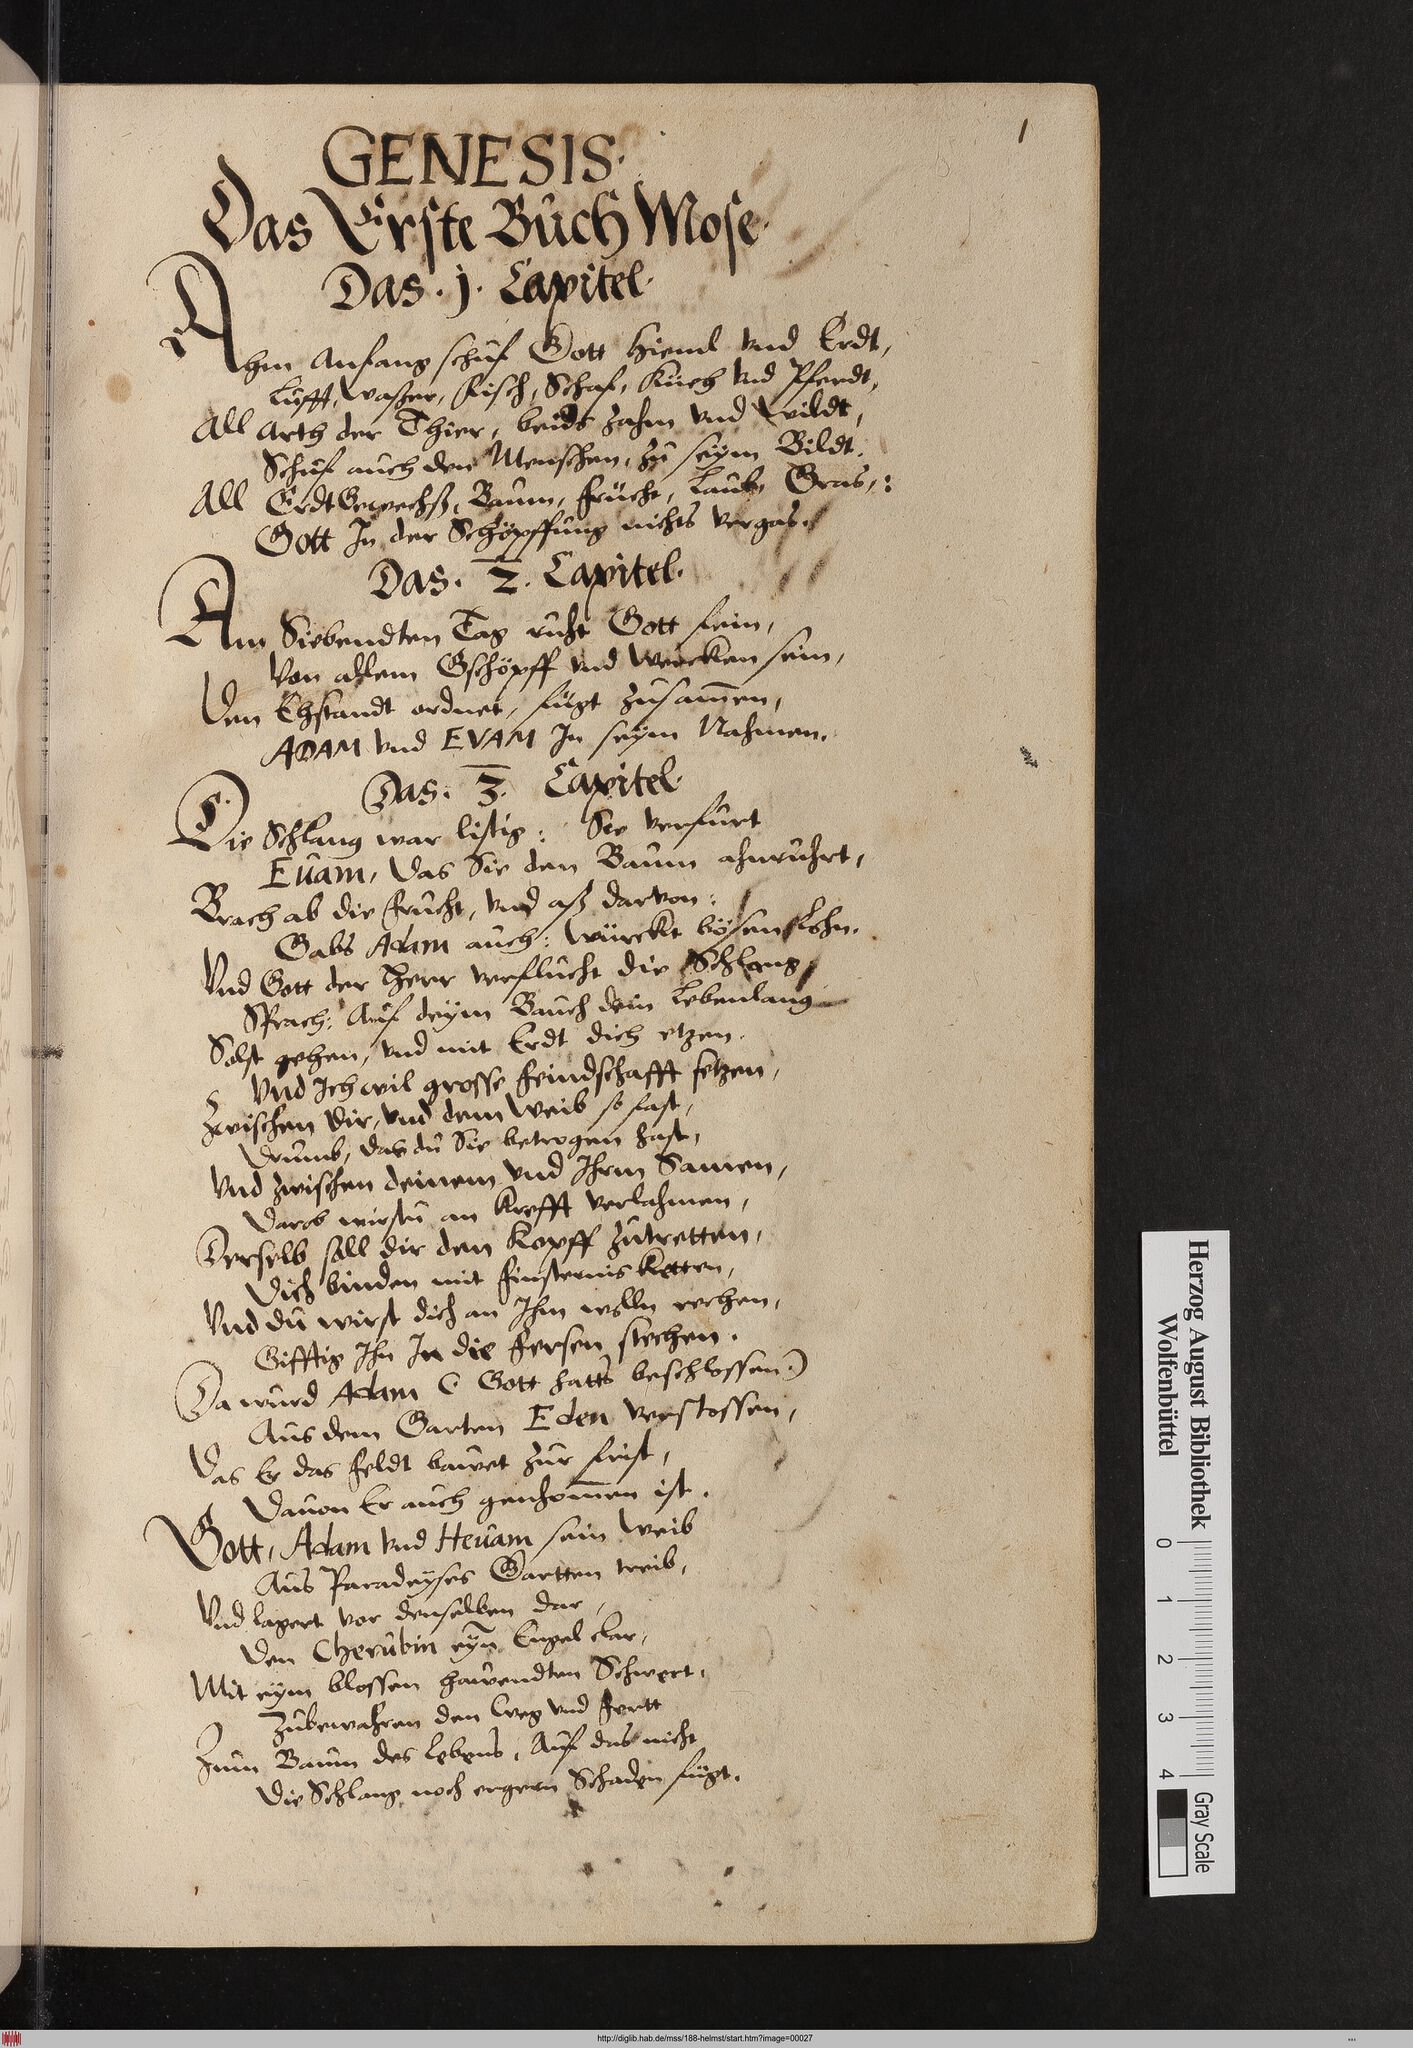 1
GENESIS.
Das Erste Buch Mose.
Das .j. Capitel.
Ahm Anfang schuf Gott Hieml vnd Erdt,
Lufft, Waßer, Fisch, Schaf, Kueh vnd Pferdt,
All Arth der Thier, beids zahm vnd Wildt,
Schuf auch den Menschen, zu seym Bildt.
All Erdt Gewechß, Baum, Früche, Laub, Gras,:
Gott In der Schöpffung nichts vergas.
Das. 2. Capitel.
Am Siebendten Tag ruht Gott fein,
Von allem Gschöpff vnd Wercken sein,
Den Ehstandt ordnet, fügt zusam̄en,
ADAM vnd EVAM In seym Nahmen.
Das. 3. Capitel.
Die Schlang war listig: Sie verfurt
Euam, Das Sie den Baum ahnruhrt,
Brach ab die Frucht, vnd aß darvon:
Gabs Adam auch: würckt bösen Lohn.
Vnd Gott der Herr verflucht die Schlang,
Sprach: Auf deym Bauch dein Lebenlang
Solst gehen, vnd mit Erdt dich etzen.
Vnd Ich wil grosse Feindschafft setzen,
Zwischen Dir, vnd dem Weib so fast,
Drumb, das du Sie betrogen hast,
Vnd zwischen deinem vnd Ihrm Samen,
Darob wirstu an Krefft verlahmen,
Derselb soll dir den Kopff zutretten,
Dich binden mit Finsternis Ketten,
Vnd du wirst dich an Ihm wolln rechen,
Gifftig Ihn In die Fersen stechen.
Da wurd Adam (: Gott hatts beschlossen:)
Aus dem Garten Eden verstossen,
Das Er das Feldt bauwet zur frist,
Dauon Er auch genhom̄en ist.
Gott, Adam vnd Heuam sein Weib
Aus Paradeyses Gartten treib,
Vnd lagert vor denselben dar,
Den Cherubin eyn̄ Engel clar,
Mit eym blossen hauwendten Schwert,
Zubewahren den Weg vnd Fertt
Zum Baum des Lebens, Auf das nicht
Die Schlang noch ergern Schaden fügt.
Herzog August Bibliothek
Wolfenbüttel
0 1 2 3 4
Gray Scale
http://diglib.hab.de/mss/188-helmst/start.htm?image=00027